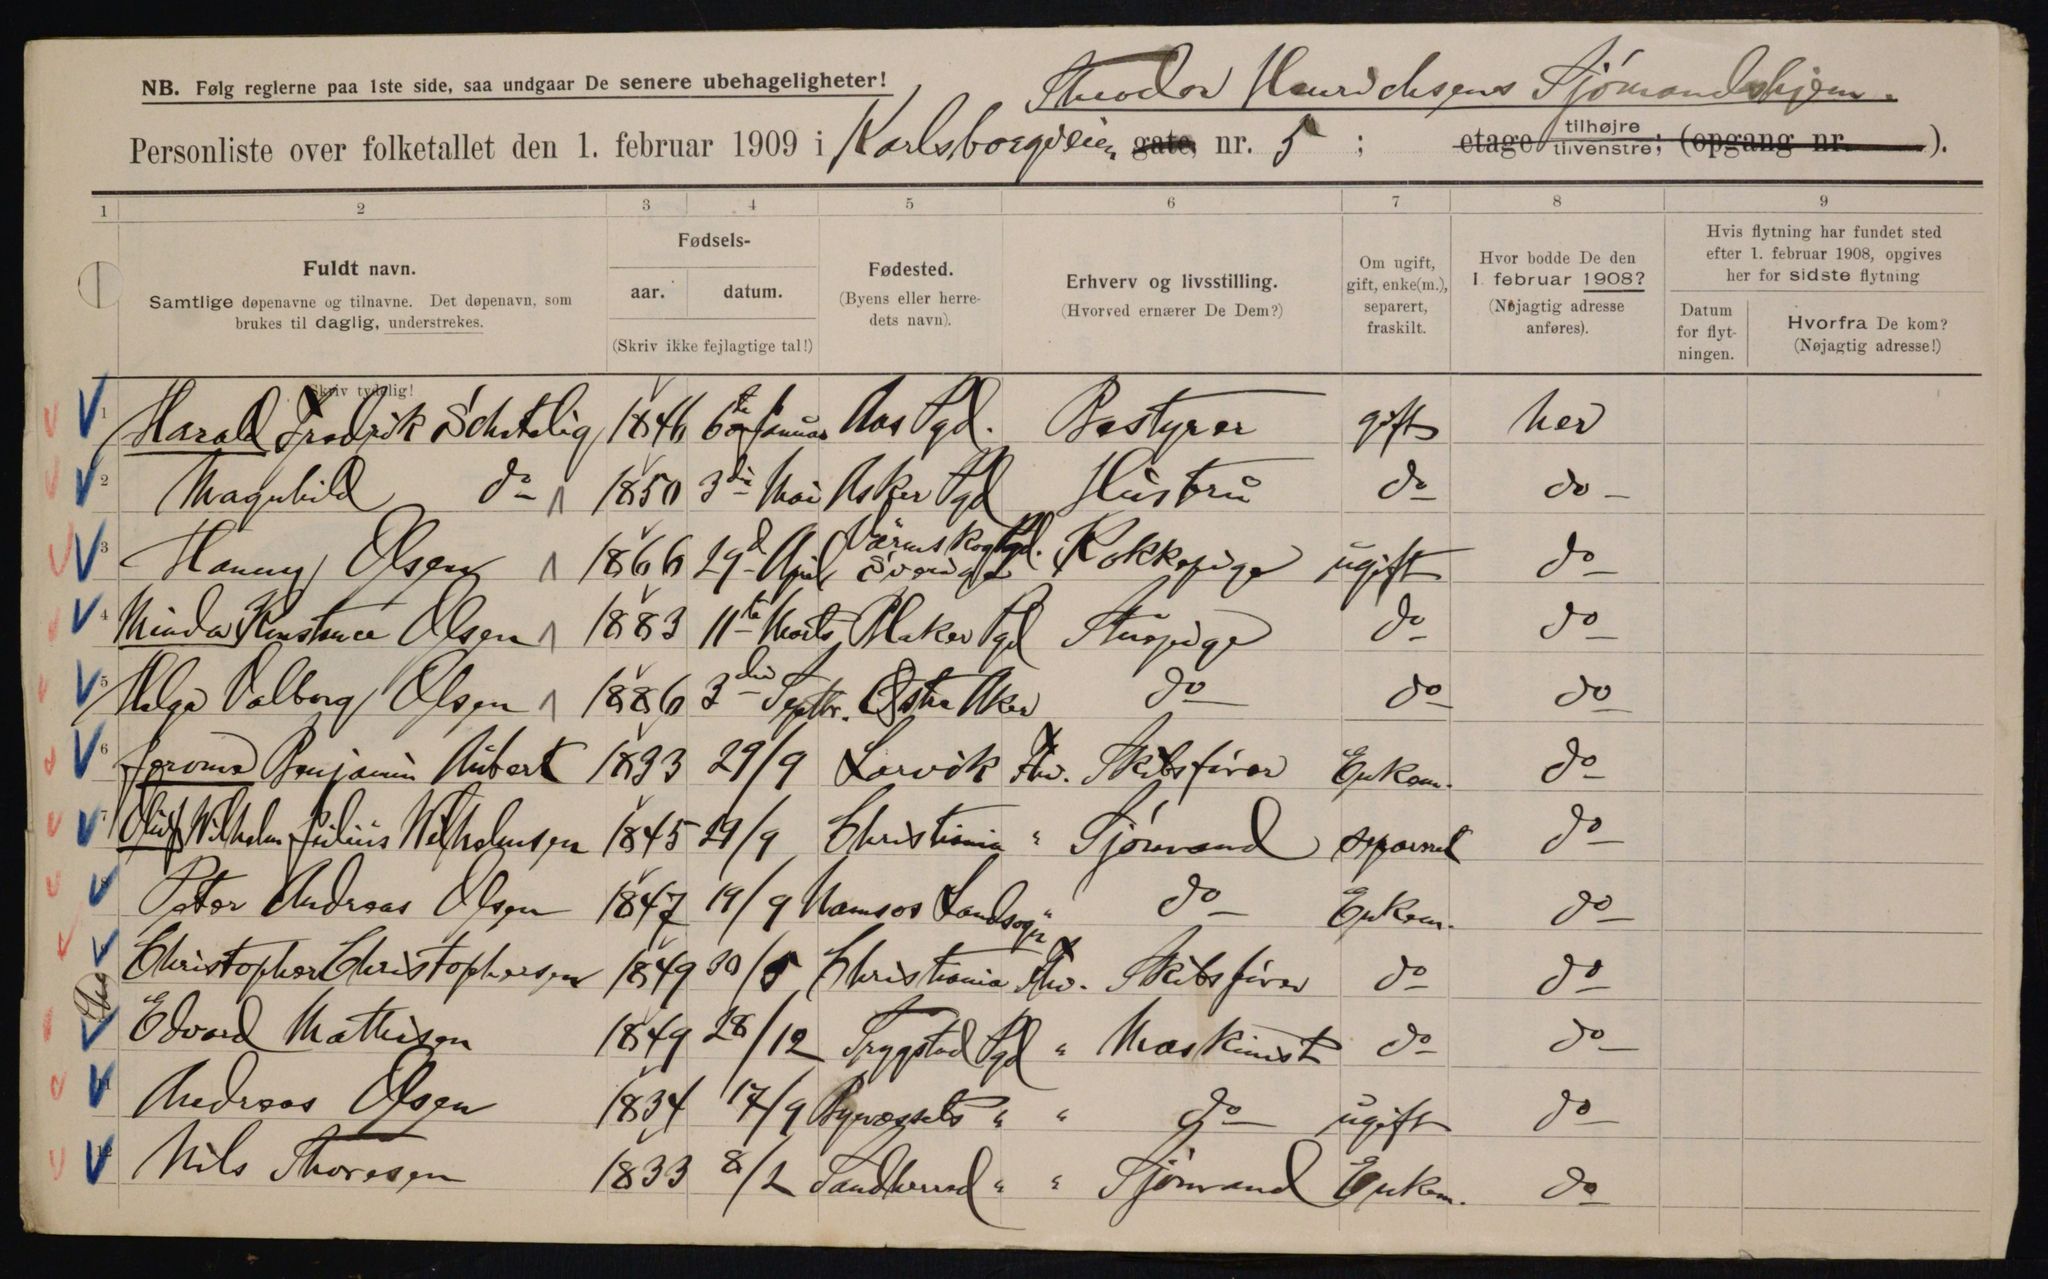 NB. Følg reglerne paa 1ste side, saa undgaar De senere ubehageligheter!
Theodor Henrichsens Sjømandshjem.
Personliste over folketallet den 1. februar 1909 i Karlsborgveien gate, nr. 5 ; etage tilhøjre tilvenstre; (opgang nr. ).
1 2 3 4 5 6 7 8 9
Fuldt navn.
Samtlige døpenavne og tilnavne. Det døpenavn, som
brukes til daglig, understrekes.
Skriv tydelig!
Fødsels-
aar. datum.
(Skriv ikke fejlagtige tal!)
Fødested.
(Byens eller herre-
dets navn).
Erhverv og livsstilling.
(Hvorved ernærer De Dem?)
Om ugift,
gift, enke(m.),
separert,
fraskilt.
Hvor bodde De den
1. februar 1908?
(Nøjagtig adresse
anføres).
Hvis flytning har fundet sted
efter 1. februar 1908, opgives
her for sidste flytning
Datum
for flyt-
ningen.
Hvorfra De kom?
(Nøjagtig adresse!)
1 Harald Fredrik Schetelig 1846 6te Januar Aas Pgd. Bestyrer gift her
2 Magnhild do 1850 3die Mai Asker Pgd Hustru do do
3 Hanny Olsen 1866 29d April Värmskog Pgd. Sverige Kokkepige ugift do
4 Minda Konstance Olsen 1883 11te Marts Blaker Pgd Stuepige do do
5 Helga Valborg Olsen 1886 3die Septbr. Østre Aker do do do
6 Jerome Benjamin Aubert 1833 29/9 Larvik Fhv. Skibsfører Enkem. do
7 Oluf Wilhelm Julius Wilhelmsen 1845 29/9 Christiania " Sjømand separert do
8 Peter Andreas Olsen 1847 19/9 Namsos Landsogn " do Enkem. do
Christopher Christophersen 1849 30/5 Christiania Fhv. Skibsfører do do
Edvard Mathisen 1849 28/12 Trygstad Pgd " Maskinist do do
11 Andreas Olsen 1834 17/9 Bynessets " " do ugift do
Nils Thoresen 1833 8/2 Sandherred " " Sjømand Enkem. do